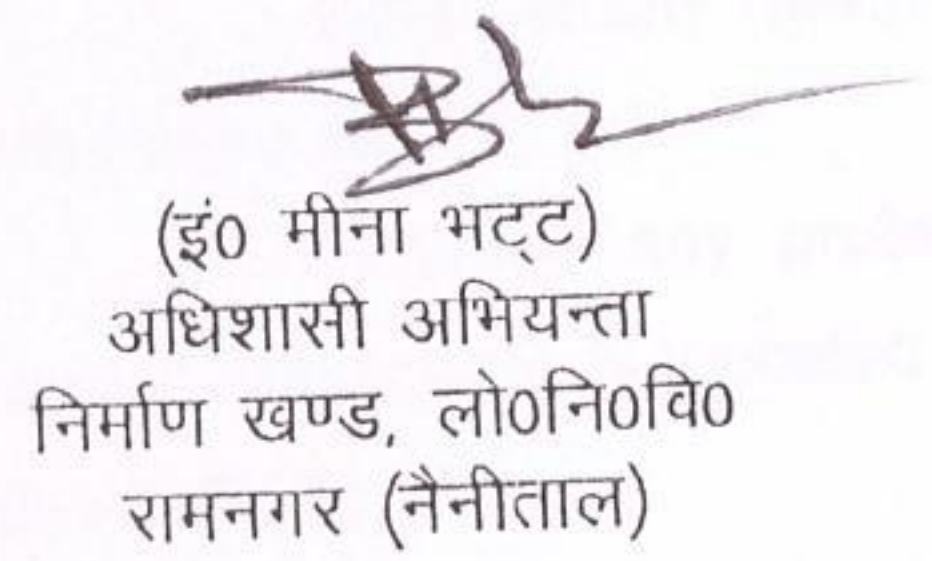 (इं0 मीना भट्ट)
अधिशासी अभियन्ता
निर्माण खण्ड, लो0नि0वि0
रामनगर (नैनीताल)